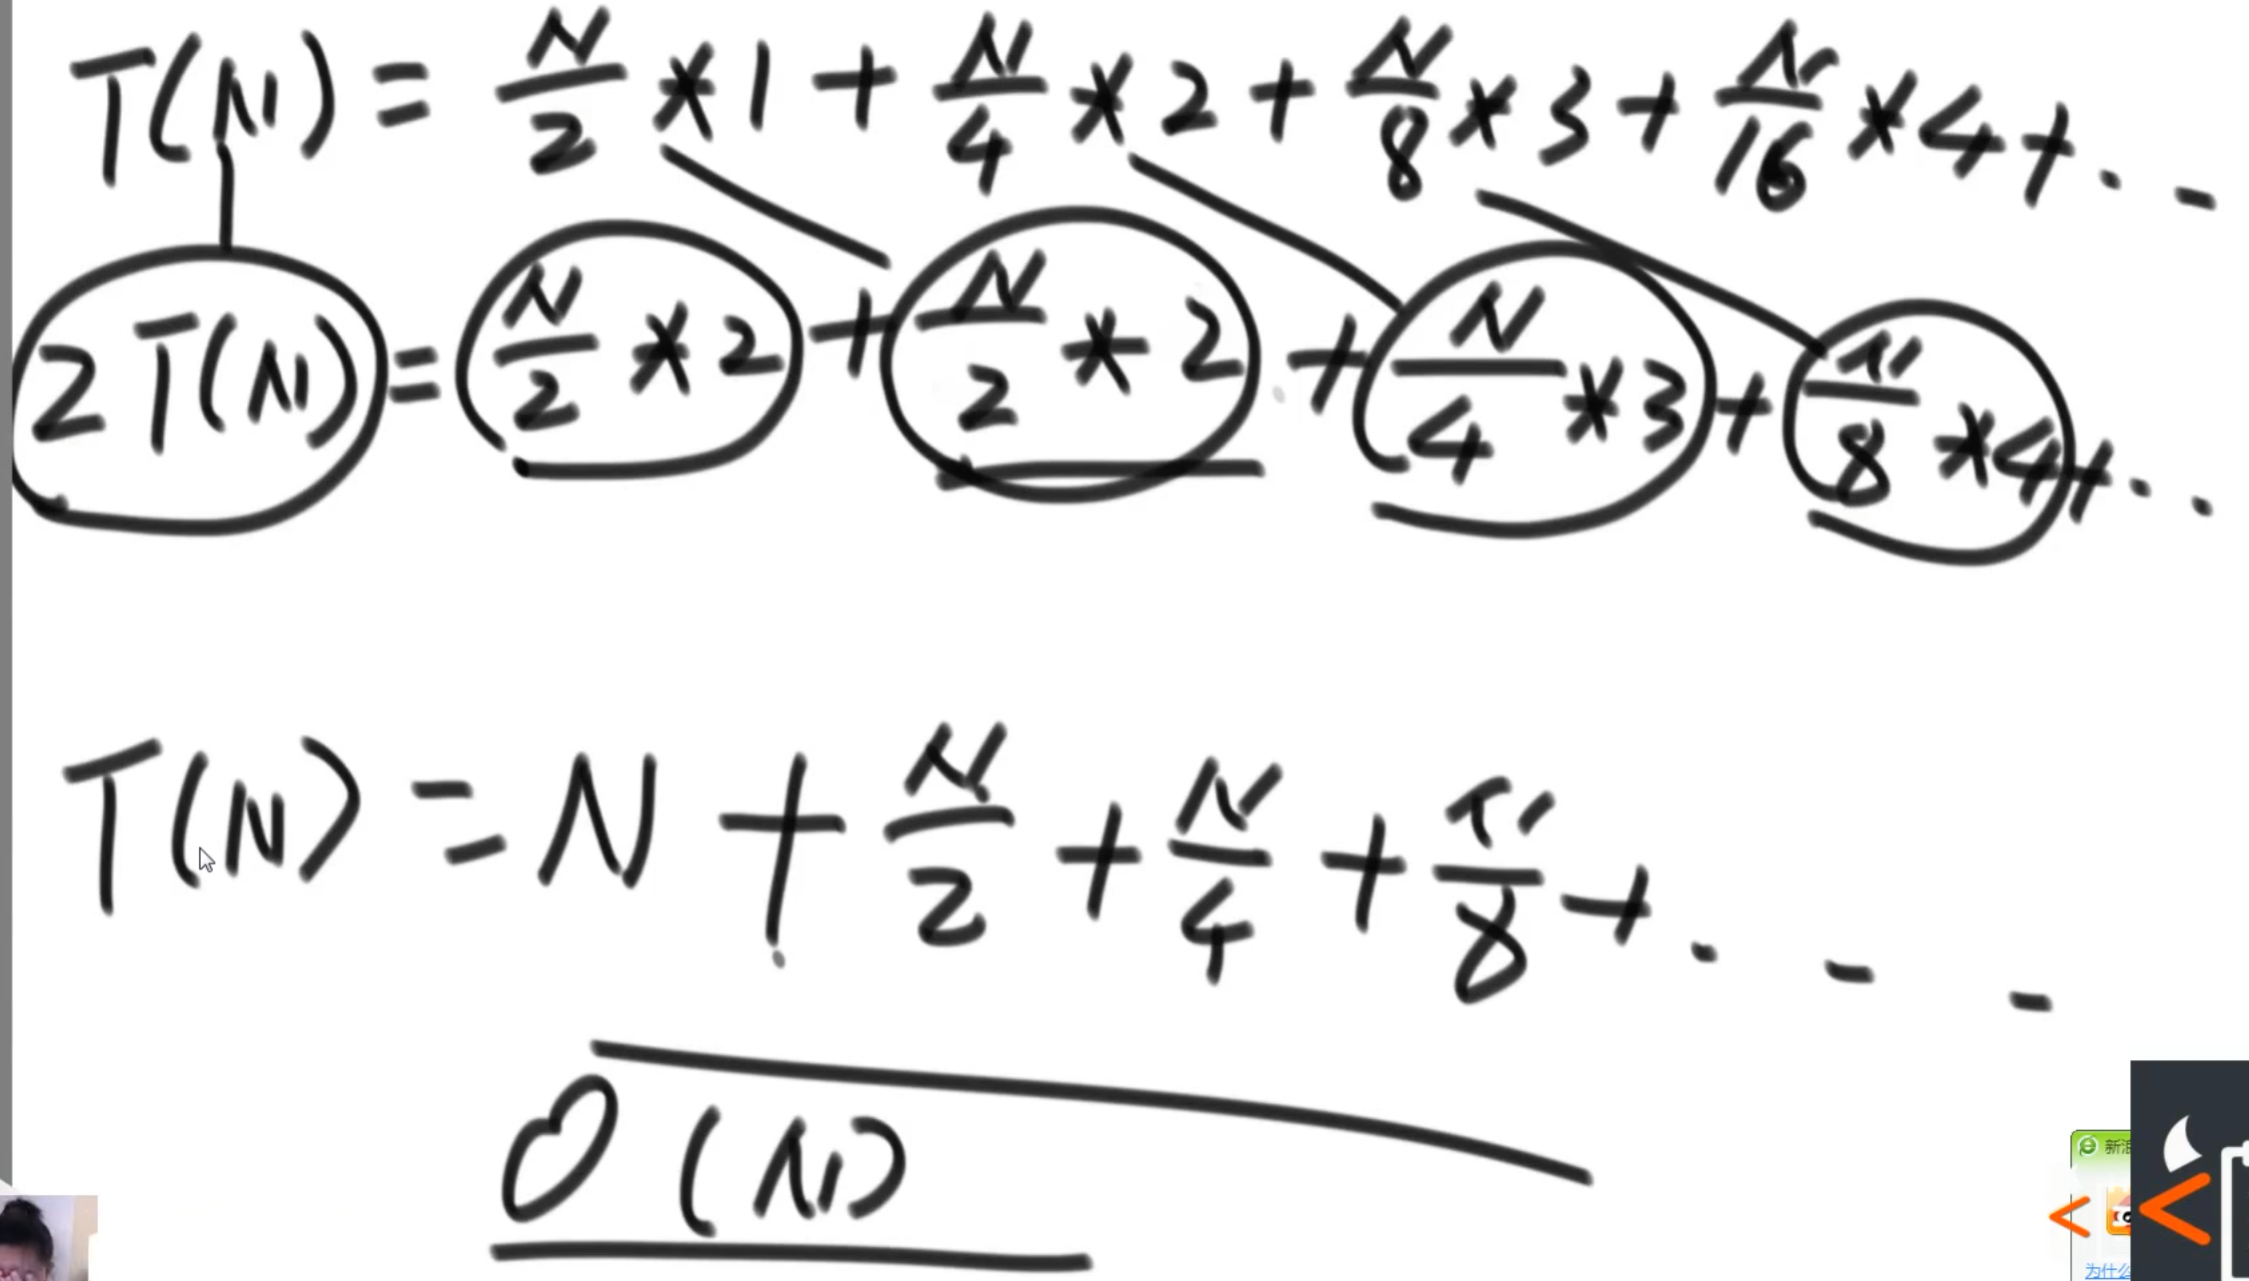 T(N) = N/2 * 1 + N/4 * 2 + N/8 * 3 + N/16 * 4 + ...
2T(N) = N/2 * 2 + N/2 * 2 + N/4 * 3 + N/8 * 4 + ...
T(N) = N + N/2 + N/4 + N/8 + ...
O(N)
为什么